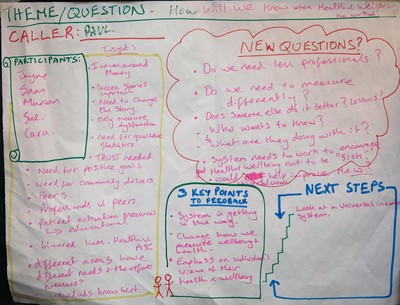 THEME/QUESTION - How Will we Know when Health & Wellbeing
has worked
CALLER: PAUL.
PARTICIPANTS:
Jayne
Sam
Sue
Cara
Insight?
Issues around
Money
Success Stories
important
Need to Change
the Story.
Only measure
dysfunction
need for qualitative
Statistics
TRUST needed
Need for positive goals
Need for community drivers
Peers
Professionals v peers
Patient activation measures
educational
blurred lines - health v
different areas have
different needs & therefore
measures?
individuals know best
NEW QUESTIONS?
Do we need less professionals?
Do we need to measure
differently?
Does someone else do it better? Lessons?
Who wants to know?
What are they doing with it?
System needs to work to encourage
Health & wellbeing not to be "Sick".
Would help improve
3 KEY POINTS
TO FEEDBACK
System is getting
in the way.
Change how we
measure wellbeing &
health.
Emphasis on individual's
views of their
health & wellbeing
NEXT STEPS
Look at a Universal income
System.